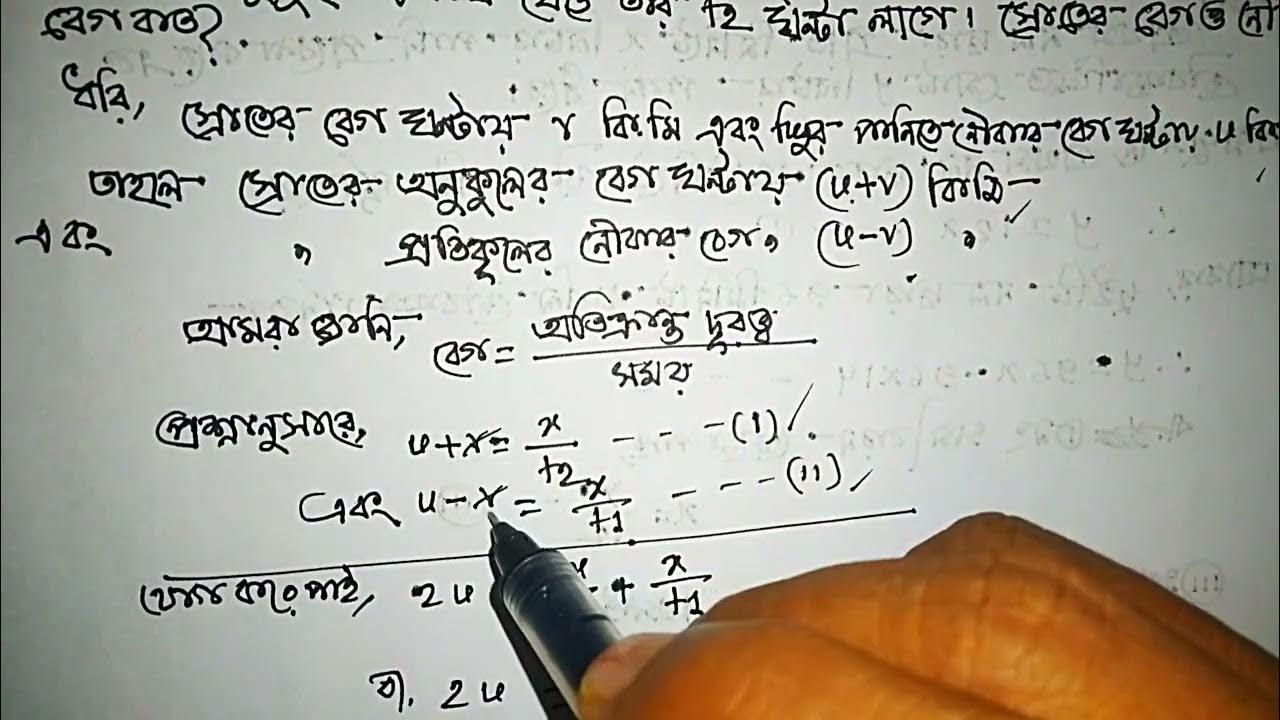 বেগ কত? যেতে তার t2 ঘন্টা লাগে। স্রোতের বেগ ও নৌ
ধরি, স্রোতের বেগ ঘন্টায় v কিমি এবং স্থির পানিতে নৌকার বেগ ঘন্টায় u কি
তাহলে স্রোতের অনুকূলের বেগ ঘন্টায় (u+v) কিমি
এবং " প্রতিকূলের নৌকার বেগ " (u-v) "
আমরা জানি, বেগ = অতিক্রান্ত দূরত্ব / সময়
প্রশ্নানুসারে, u+v = x/t2 - - - (i)
এবং u-v = x/t1 - - - (ii)
যোগ করে পাই, 2u + x/t1
বা, 2u